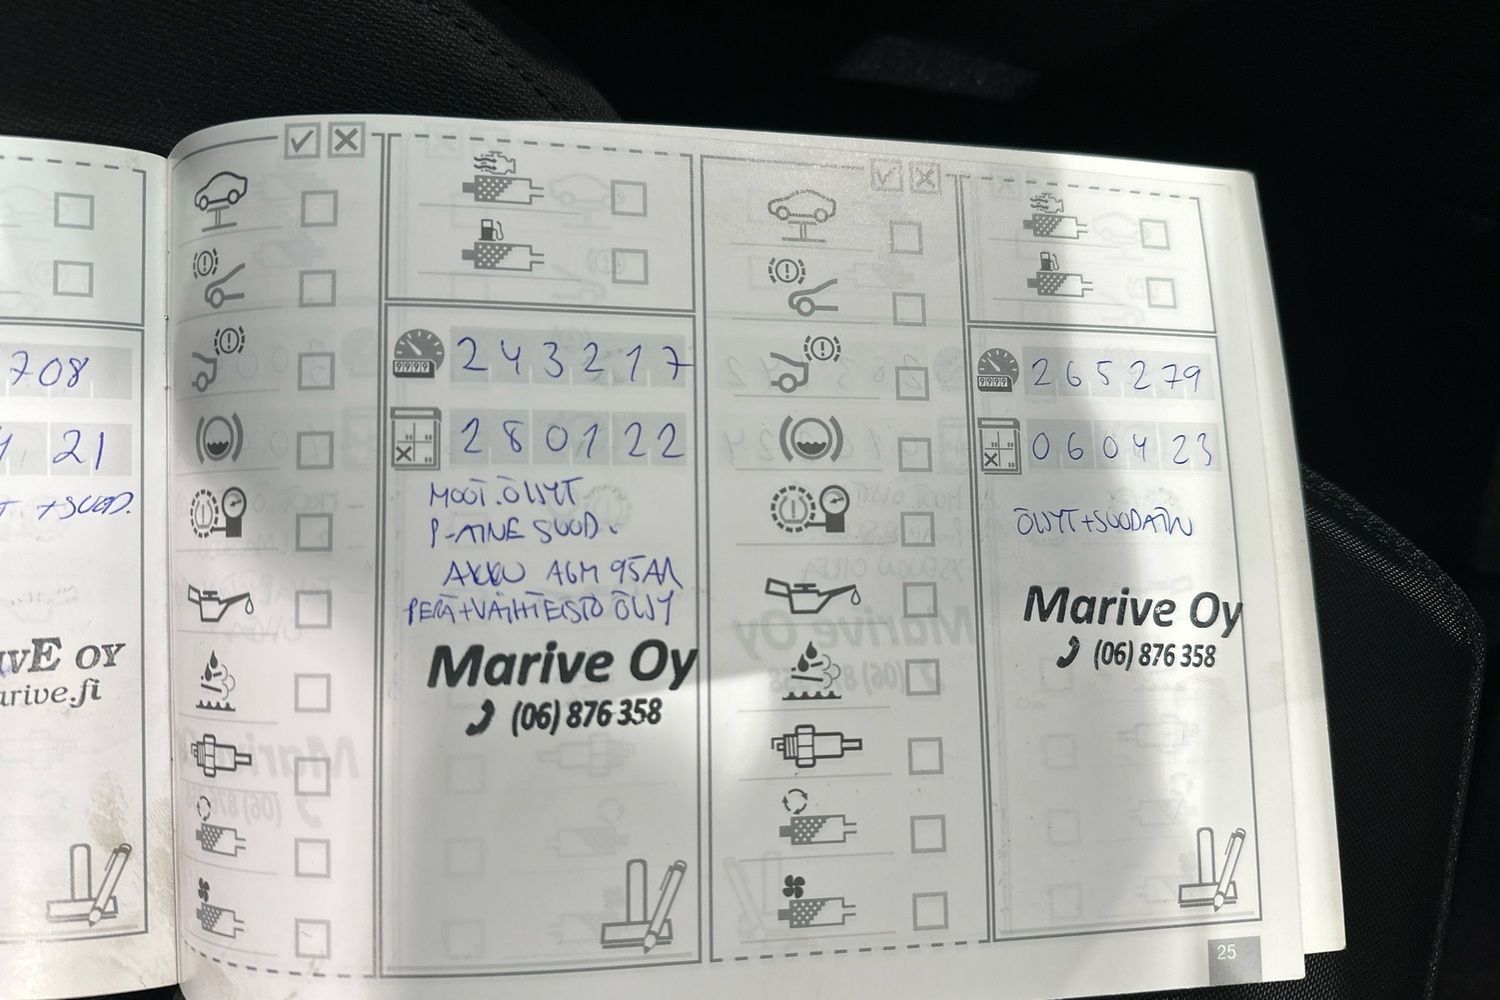 708
21
+SUOD.
IVE OY
arive.fi
9999
243217
280122
MOOT.ÖLJYT
P-AINE SUOD.
AKKU AGM 95AH
PERÄ+VAIHTEISTO ÖLJY
Marive Oy
(06) 876 358
9999
265279
060423
ÖLJYT+SUODATIN
Marive Oy
(06) 876 358
25